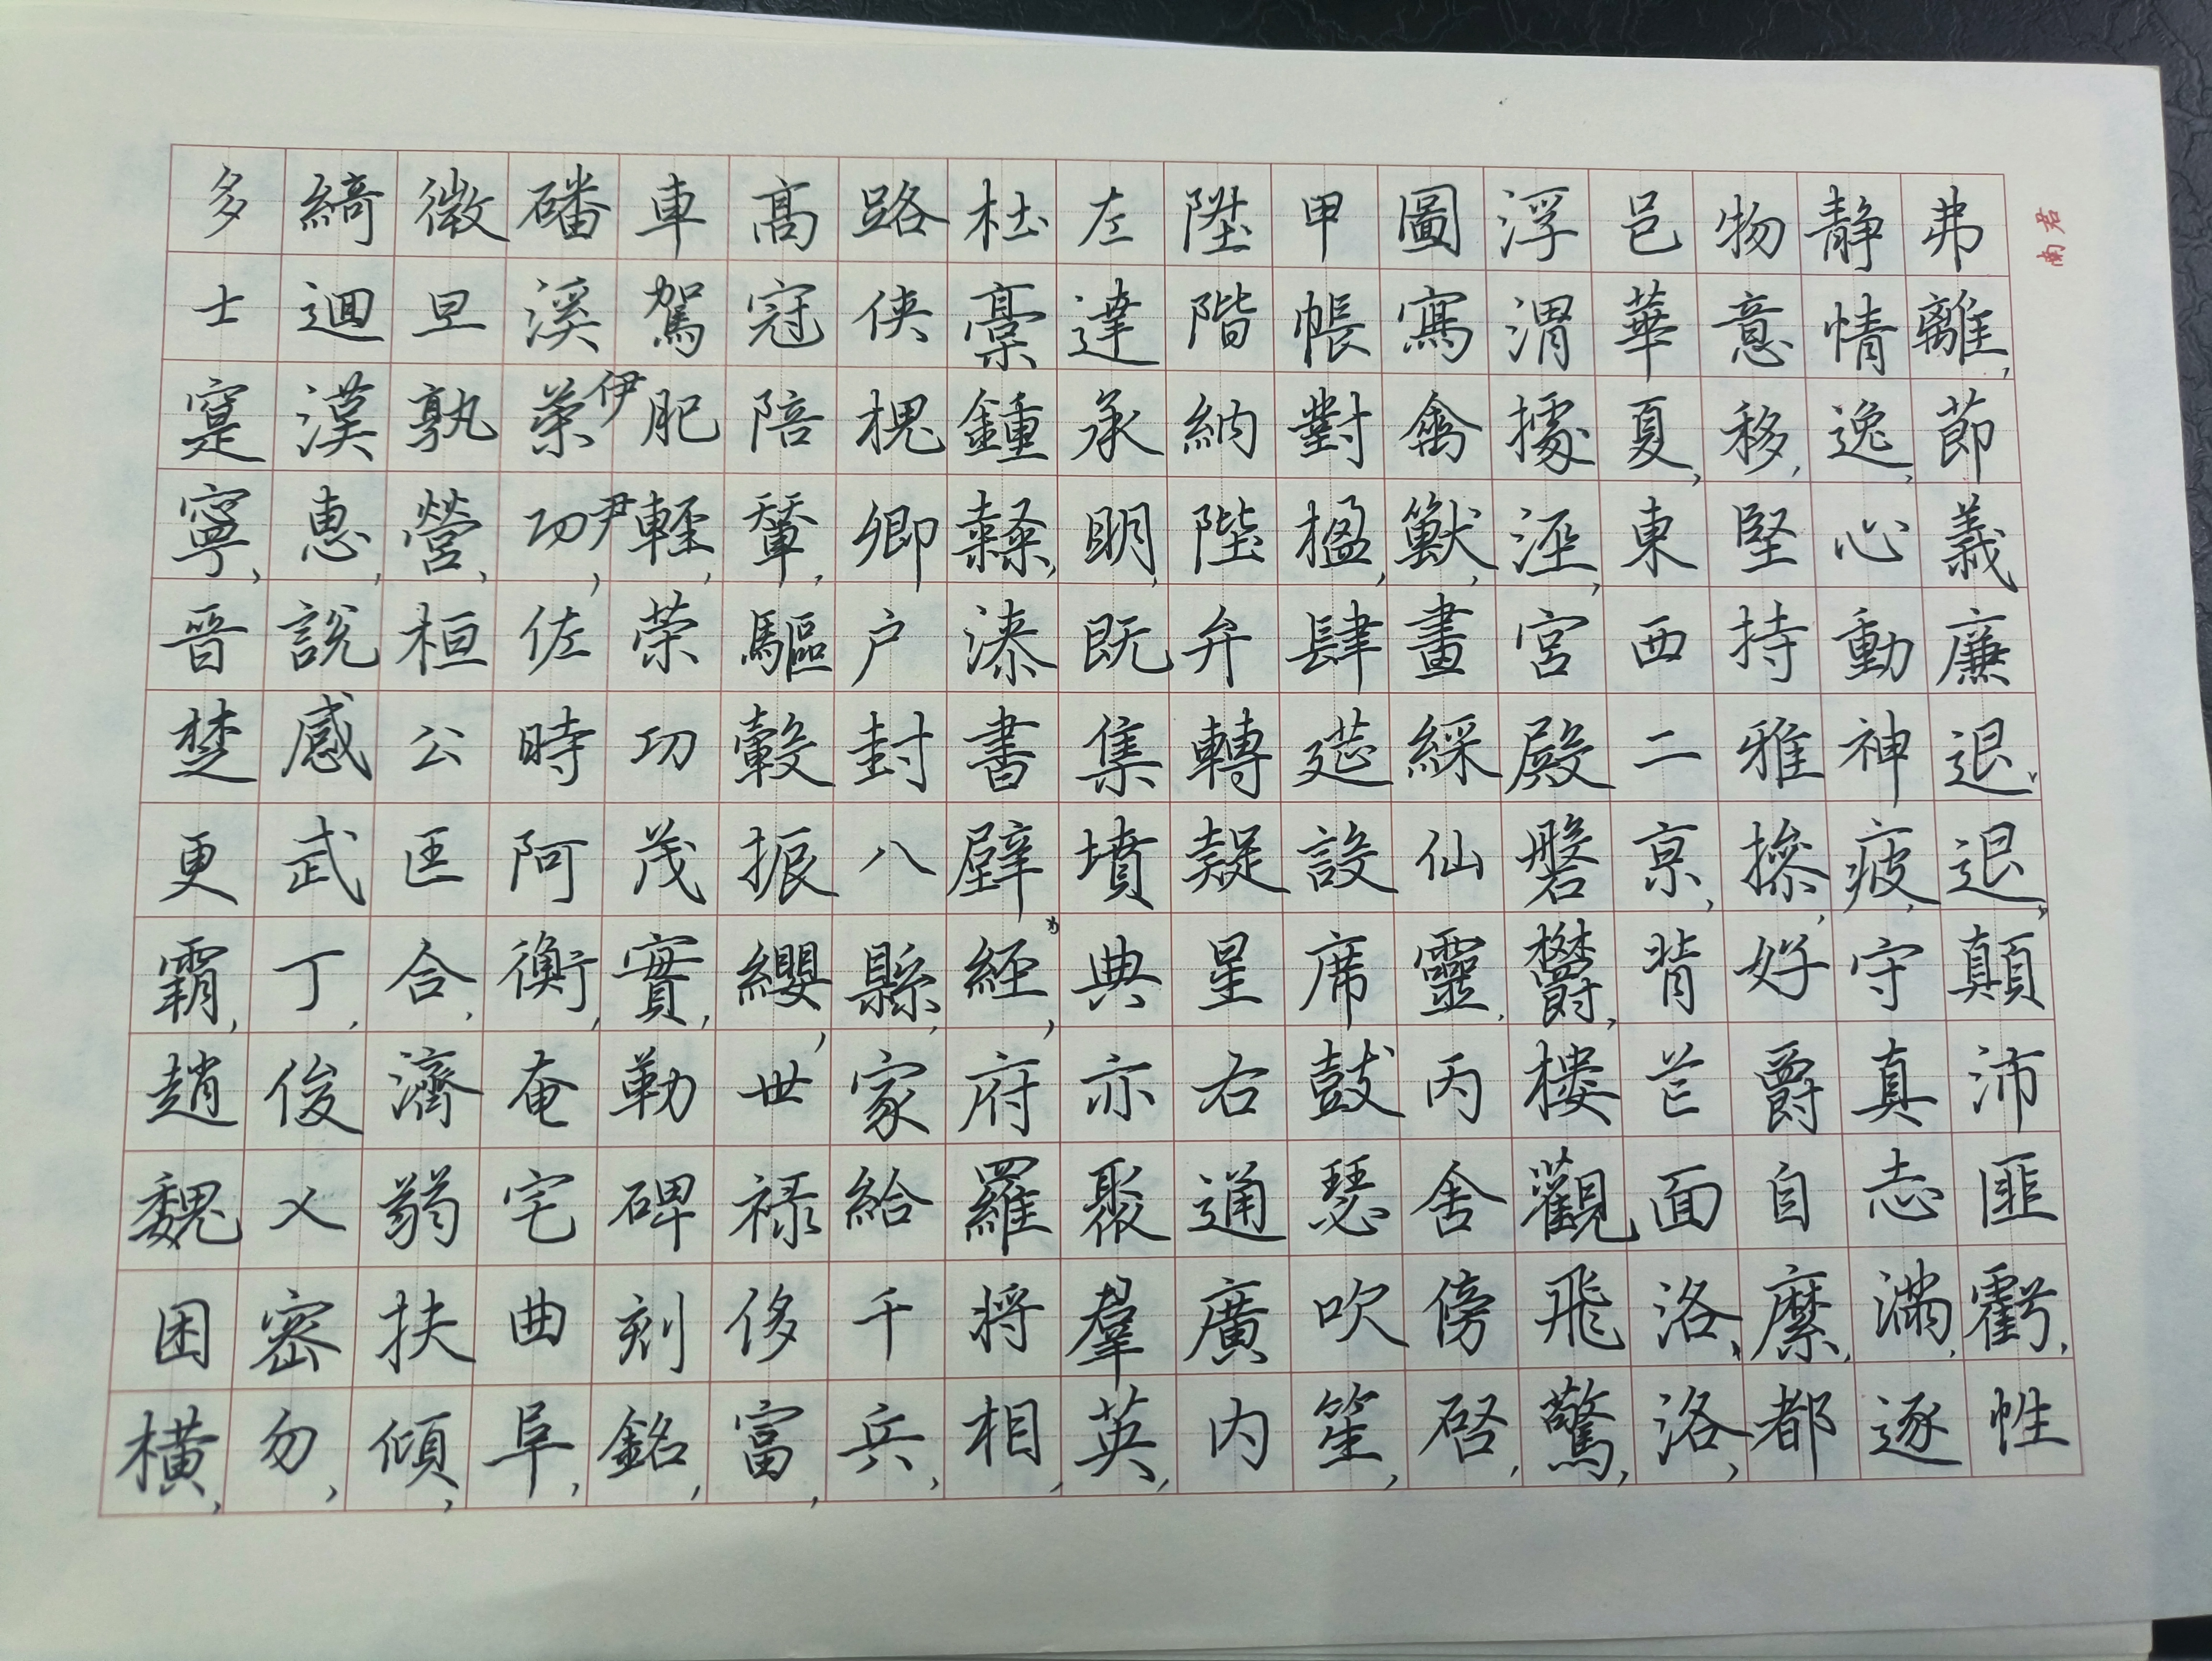 弗離,節義廉退、退,顛沛匪虧,性
静情逸,心動神疲,守真志滿,逐
物意移,堅持雅操,好爵自縻,都
邑華夏,東西二京,背芒面洛、洛,
浮渭據涇,宮殿磐欝,樓觀飛驚,
圖寫禽獸,畫綵仙靈,丙舍傍啓,
甲帳對楹,肆筵設席鼓瑟吹笙,
陞階納陛弁轉疑星右通廣内
左達承明,既集墳典亦聚羣英,
杜稾鍾隸,漆書壁經,府羅将相,
路侠槐卿户封八縣,家給千兵,
高冠陪輦,驅轂振纓,世禄侈富,
車駕肥輕,策功茂實,勒碑刻銘,
磻溪伊尹策功,佐時阿衡,奄宅曲阜,
微旦孰營,桓公匡合,濟弱扶傾,
綺迴漢惠,説感武丁,俊乂密勿,
多士寔寧,晉楚更霸,趙魏困橫,